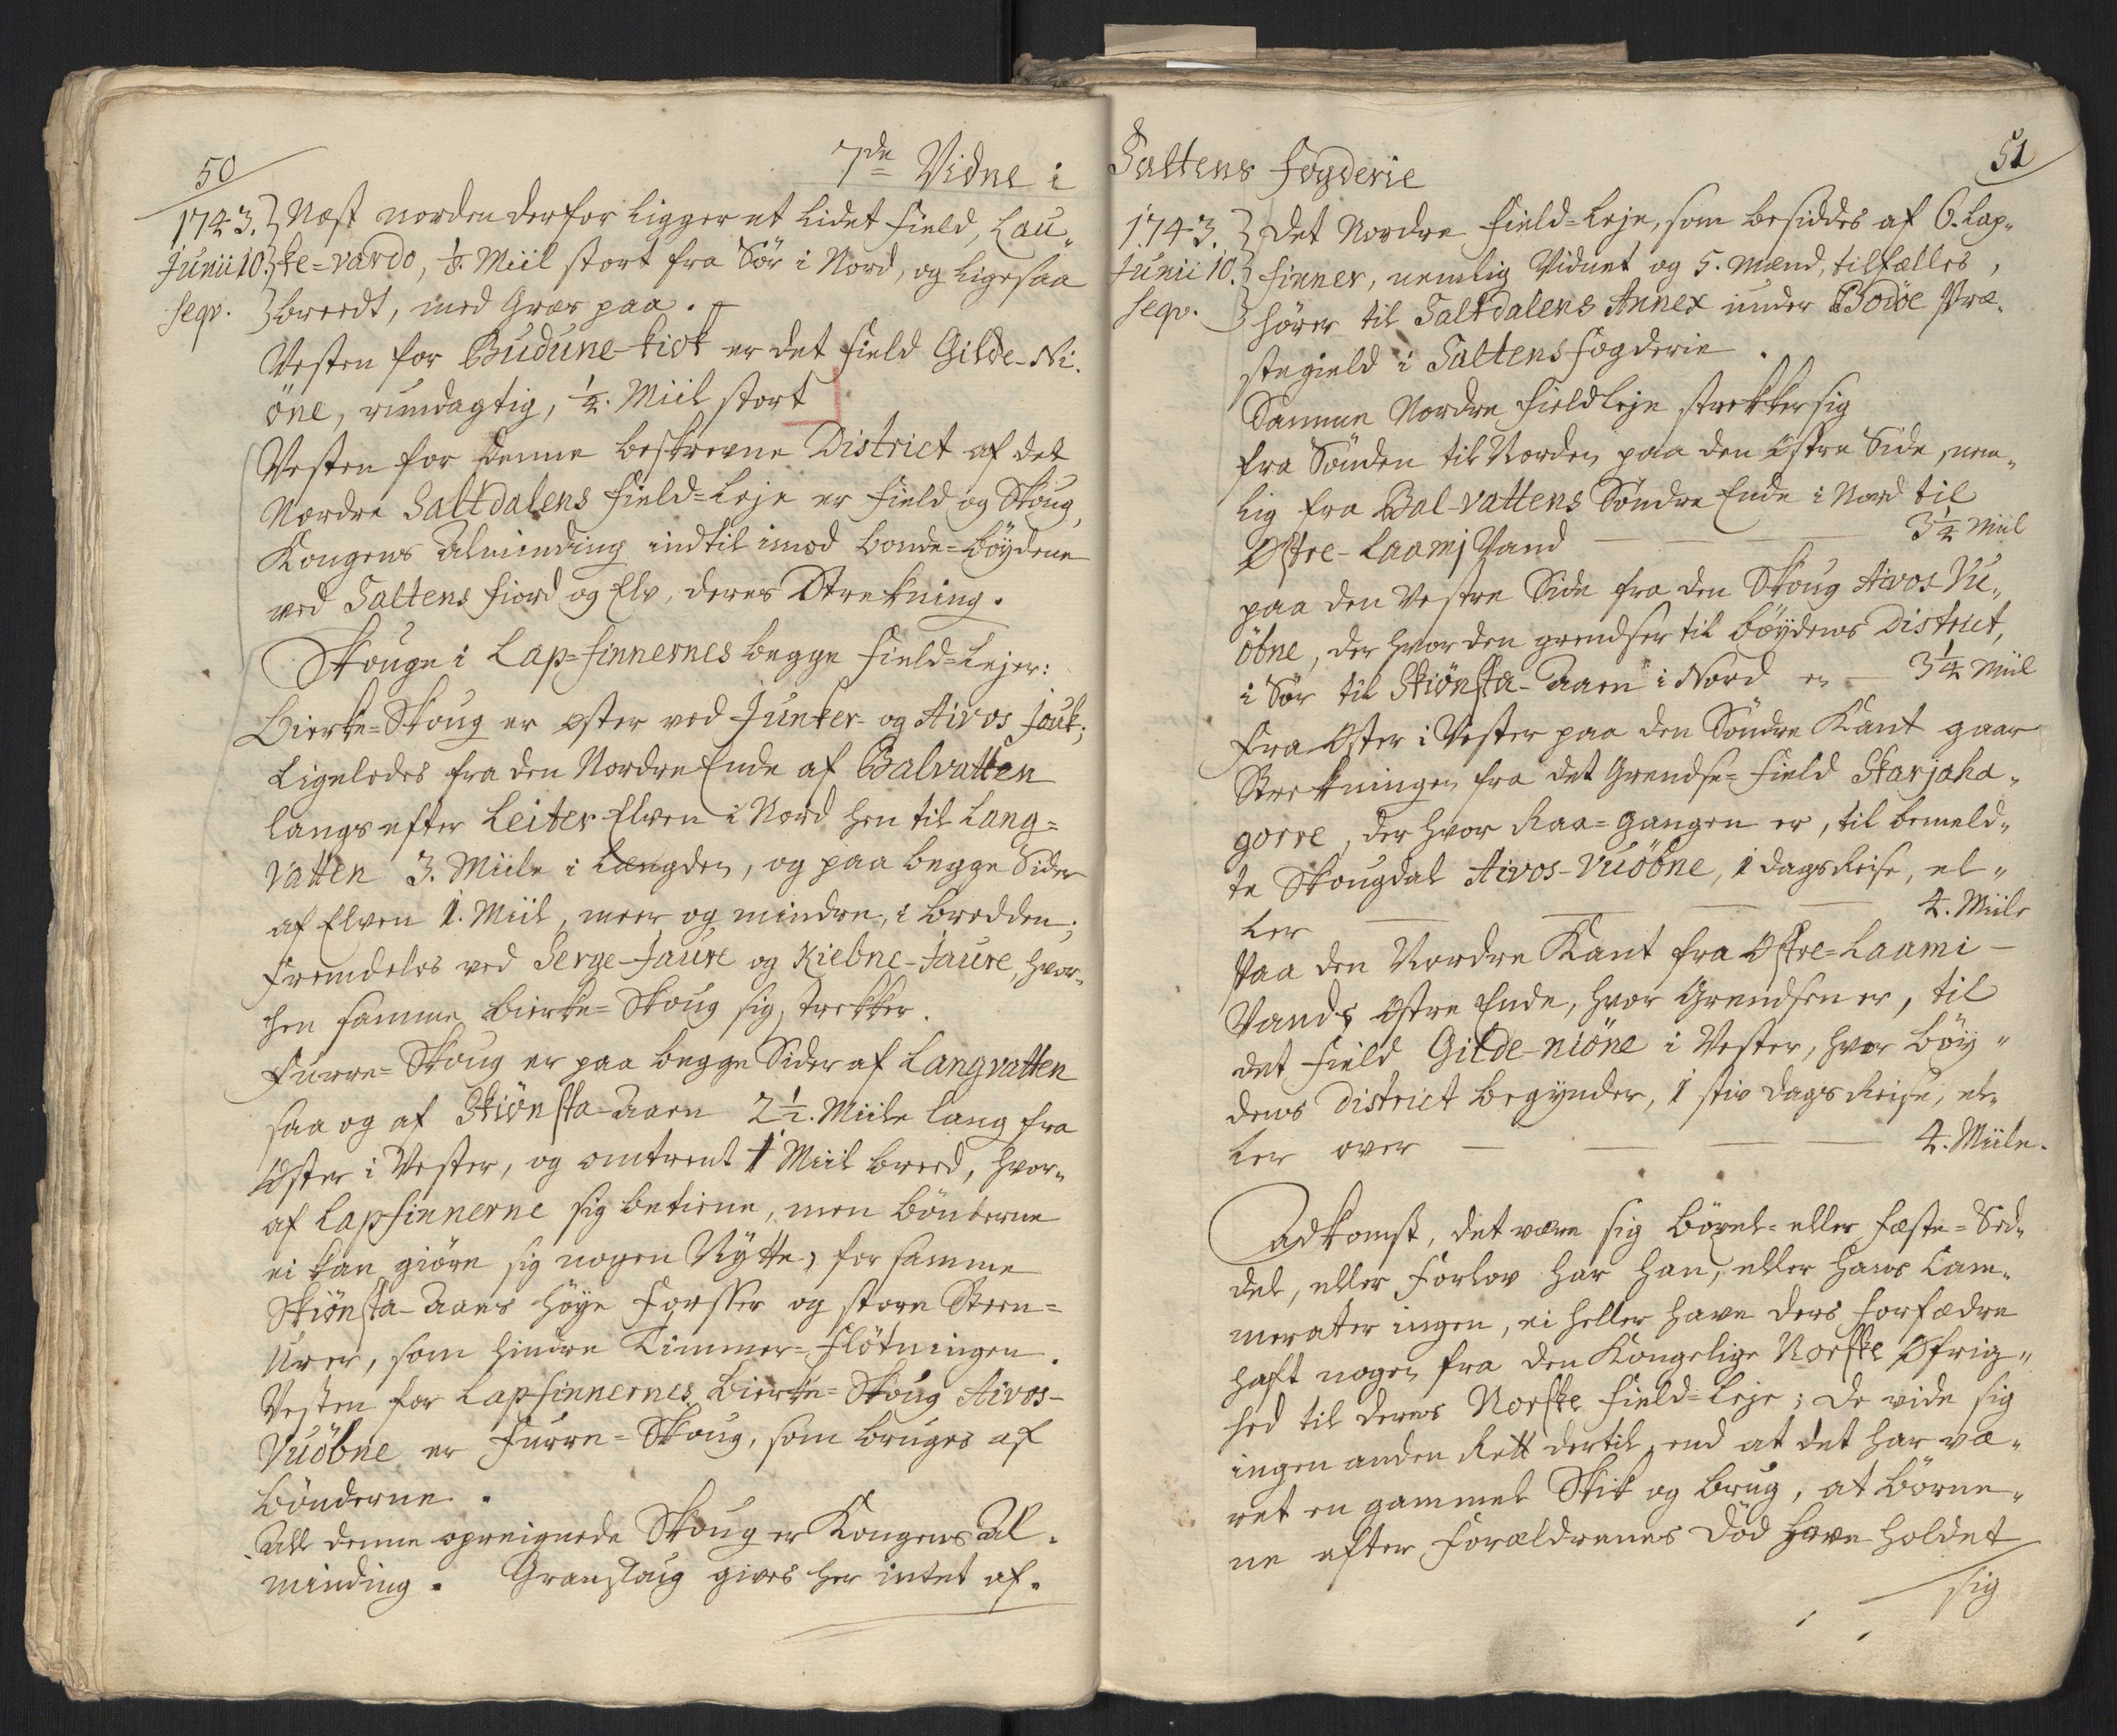 50
7de Vidne i
1743. Næst norden derfor ligger et lidet Field, Lau„
Junii 10. ke=vardo, ⅛. Miil stort fra Sör i Nord, og ligesaa
seqv. breedt, med Græs paa.
Vesten for Budune-kisk er det Field Gilde-Ni„
öne, rundagtig, ½. Miil stort
Vesten for denne beskrevne District af det
Nordre Saltdalens Field=Leje er Field og Skoug,
Kongens Alminding indtil imod bonde=böydene
ved Saltens Fiord og Elv, deres Strekning.
Skouge i Lap=Finnernes begge Field=Lejer:
Birke=Skoug er øster ved Junker- og Aivos jouk;
Ligeledes fra den Nordre Ende af Balvatten
langs efter Leiter-Elven i Nord hen til Lang=
vatten 3. Miile i Længden, og paa begge Sider
af Elven 1. Miil, meer og mindre, i bredden;
Fremdeles ved Serge-Jaure og Kiebne-Jaure, hvor„
hen samme Birke=Skoug sig strekker.
Furre=Skoug er paa begge Sider af Langvatten
saa og af Skiönsta-Aaen 2½. Miile lang fra
Øster i Vester, og omtrent 1 Miil breed, hvor„
af Lapfinnerne sig betiene, men bönderne
ei kan giöre sig nogen Nytte, for samme
Skiönsta-Aaes höye Forsser og store Steen=
Urer, som hindre Timmer=Flötningen.
Vesten for Lapfinnernes birke=Skoug Aivos-
Vuöbne er Furre=Skoug, som bruges af
bönderne.
All denne opreignede Skoug er Kongens Al„
minding. Granskoug gives her intet af.
Saltens Fogderie
51
1743. Det Nordre Field=Leje, som besiddes af 6. Lap„
Junii 10. Finner, nemlig Vidnet og 5. Mænd, tilfælles,
seqv. hører til Saltdalens Annex under Bodöe Præ„
stegield i Saltens Fogderie.
Samme Nordre Field Leje strekker sig
fra Sönden til Norden paa den østre Side, nem„
lig fra Bal-vattens Söndre Ende i Nord til
Østre-Laamj Vand — 3½ Miil
paa den Vestre Side fra den Skoug Aivos-Vu„
öbne, der hvor den grendser til böydens District,
i Sör til Skiönsta-Aaen i Nord er — 3¼ Miil
Fra Øster i Vester paa den Söndre Kant gaar
Strekningen fra det Grendse=Field Skarjaha„
gorre, der hvor Raa=Gangen er, til bemeld„
te Skougdal Aivos-Vuöbne, 1 dags Reise, el„
ler — 4. Miile
Paa den Nordre Kant fra Østre=Laami-
Vands østre Ende, hvor Grendsen er, til
det Field Gilde-niöne i Vester, hvor böy„
dens District begynder, 1 stiv dags Reise, el„
ler over — 4. Miile.
Adkomst, det være sig böxel- eller Fæste=Sed„
del, eller Forlov har han, eller hans Cam„
merater ingen, ei heller have ders Forfædre
haft nogen fra den Kongelige Norske Øfrig„
hed til deres Norske Field=Leje; De vide sig
ingen anden Rett dertil, end at det har væ„
ret en gammel Skik og brug, at börne„
ne efter Foreldrenes Död have holdet
sig